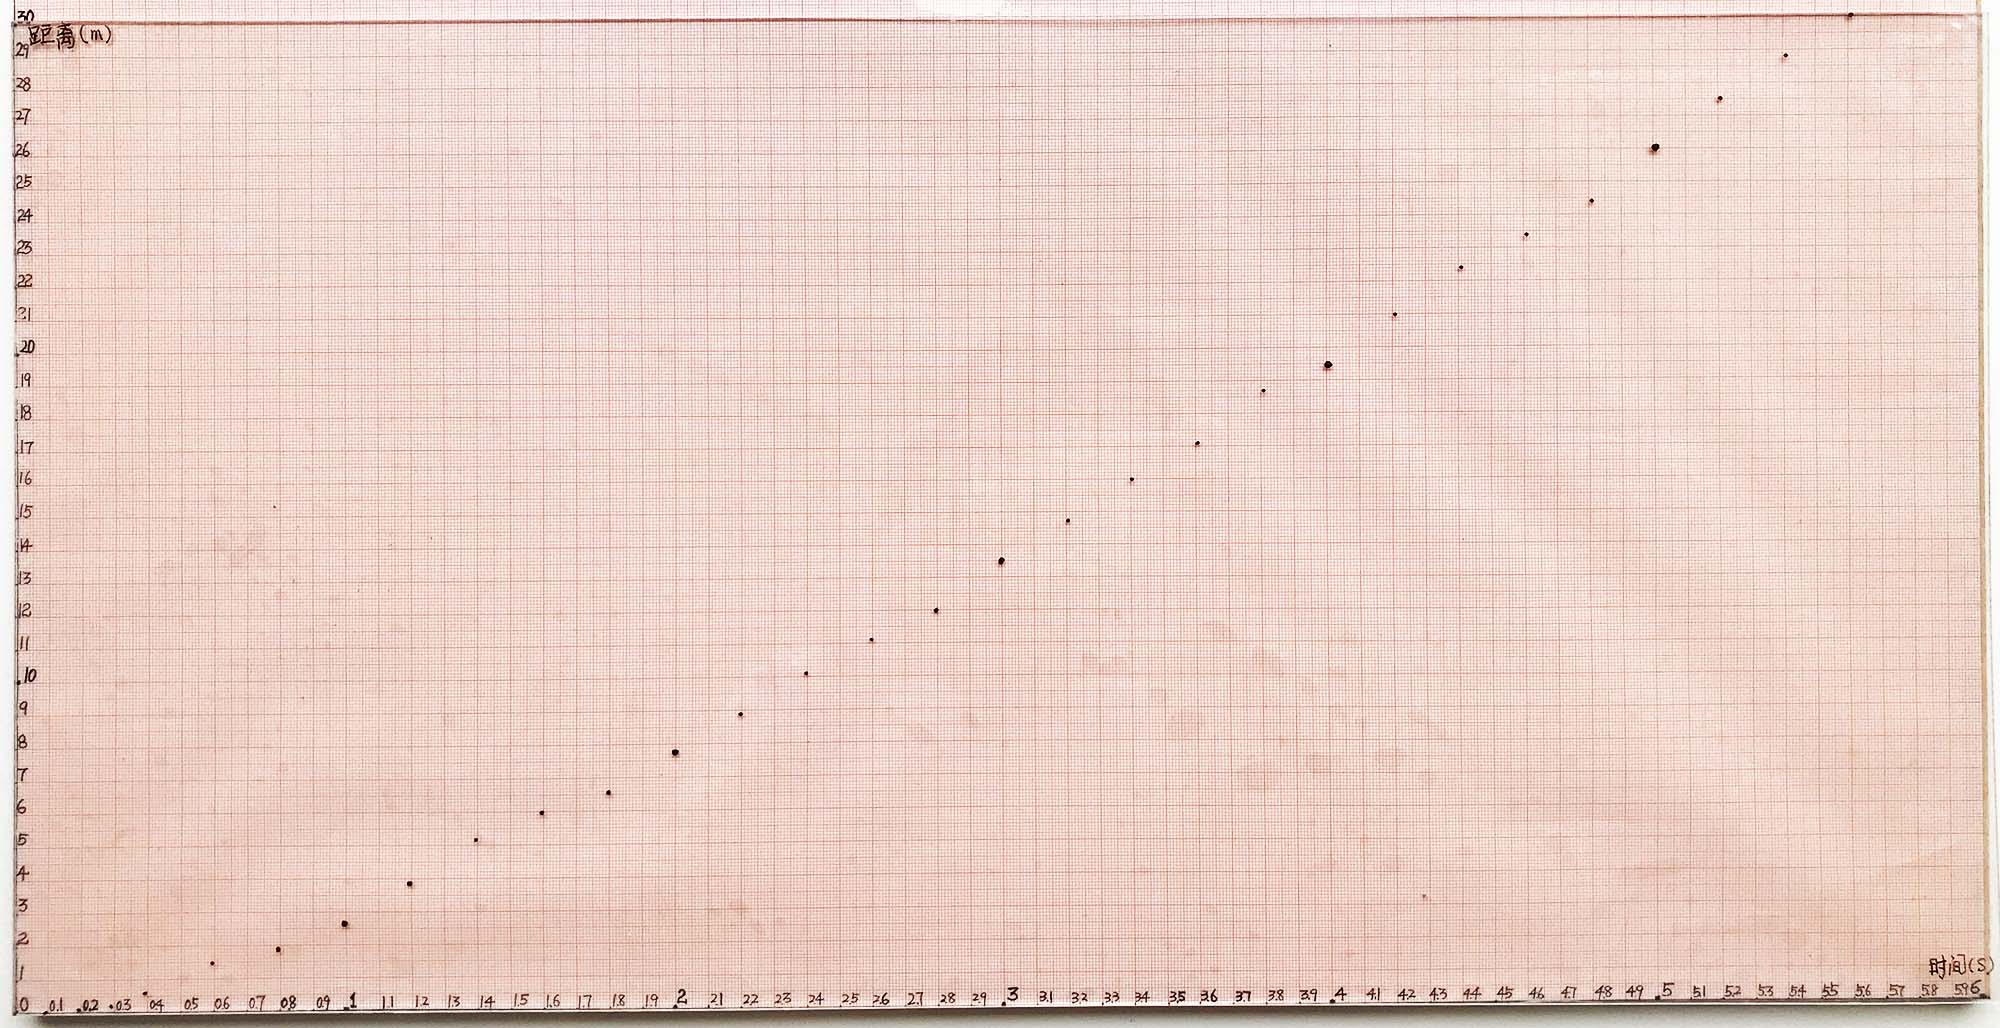 30
距离(m)
29
28
27
26
25
24
23
22
21
20
19
18
17
16
15
14
13
12
11
10
9
8
7
6
5
4
3
2
1
时间(S)
0 0.1 0.2 0.3 0.4 0.5 0.6 0.7 0.8 0.9 1 1.1 1.2 1.3 1.4 1.5 1.6 1.7 1.8 1.9 2 2.1 2.2 2.3 2.4 2.5 2.6 2.7 2.8 2.9 3 3.1 3.2 3.3 3.4 3.5 3.6 3.7 3.8 3.9 4 4.1 4.2 4.3 4.4 4.5 4.6 4.7 4.8 4.9 5 5.1 5.2 5.3 5.4 5.5 5.6 5.7 5.8 5.9 6